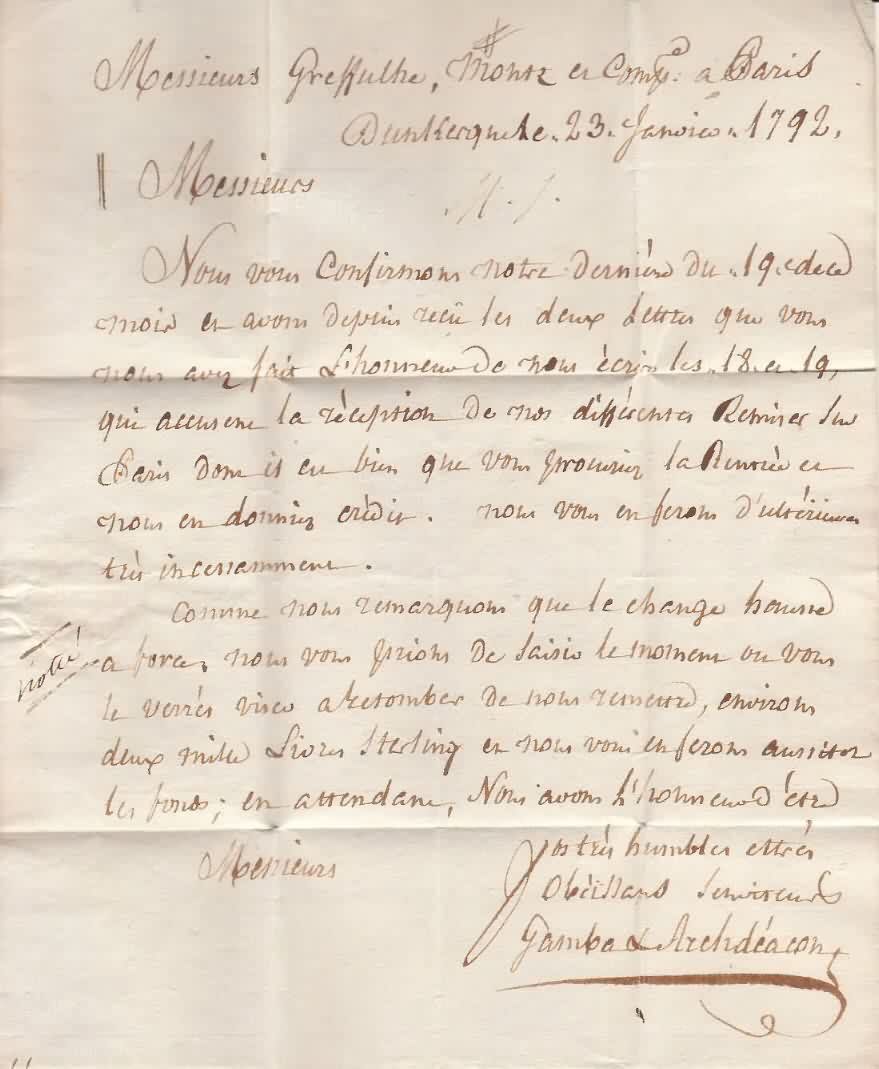 Messieurs Greffulhe, Montz et Compe. a Paris
Dunkerque le .23. Janvier .1792.
Messieurs
Nous vous Confirmons notre derniere du .19. de ce
mois et avons depuis recû les deux Lettres que vous
nous avez fait L'honneur de nous écrire les .18. et 19.
qui accusent la réception de nos différentes Remises sur
Paris dont il est bien que vous procuriez la Rentrée et
nous en donniez crèdit. nous vous en ferons d'ultérieures
très incessamment.
Comme nous remarquons que le change hausse
a force, nous vous prions de saisir le moment ou vous
noté!
le verrés viser a retomber de nous remettre, environs
deux mille Livres Sterling et nous vous en ferons aussitot
les fonds; en attendant, Nous avons L'honneur d'être
Messieurs
Vos très humbles et très
Obéissans Serviteurs
Gamba & Archdéacon